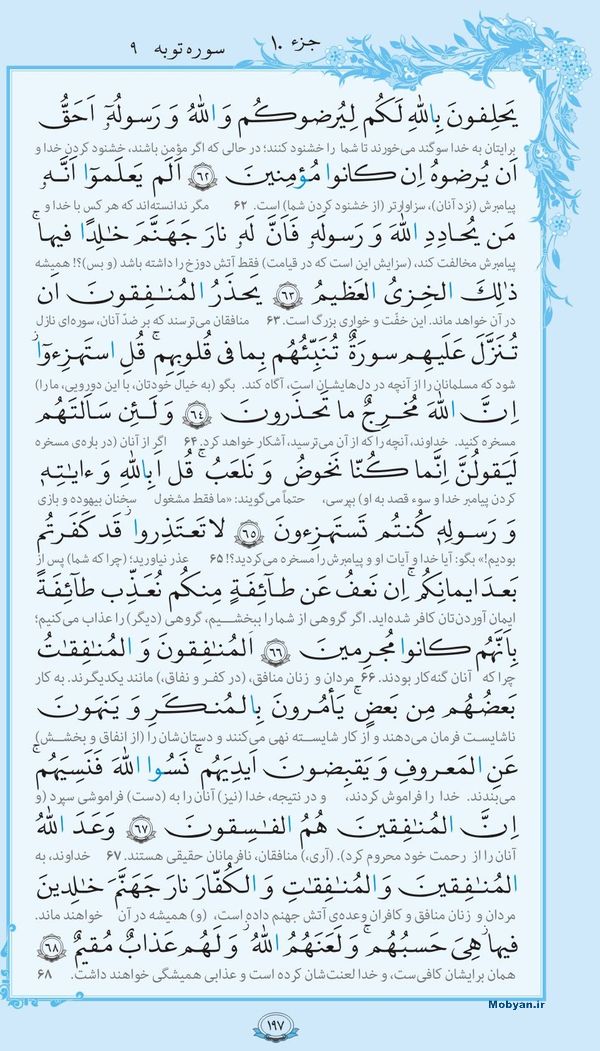 جزء ۱۰
سوره توبه ۹
يَحلِفونَ بِاللهِ لَكُم لِيُرضوكُم وَ اللهُ وَ رَسولُهٗٓ اَحَقُّ
برایتان به خدا سوگند می‌خورند تا شما را خشنود کنند؛ در حالی که اگر مؤمن باشند، خشنود کردن خدا و
اَن يُرضوهُ اِن كانوا مُؤمِنينَ ۶۲ اَلَم يَعلَموٓا اَنَّهٗ
پیامبرش (نزد آنان)، سزاوارتر (از خشنود کردن شما) است. ۶۲ مگر ندانسته‌اند که هر کس با خدا و
مَن يُحادِدِ اللهَ وَ رَسولَهٗ فَاَنَّ لَهٗ نارَ جَهَنَّمَ خٰلِدًا فيها ۚ
پیامبرش مخالفت کند، (سزایش این است که در قیامت) فقط آتش دوزخ را داشته باشد (و بس)؟! همیشه
ذٰلِكَ الخِزيُ العَظيمُ ۶۳ يَحذَرُ المُنٰفِقونَ اَن
در آن خواهد ماند. این خفّت و خواری بزرگ است. ۶۳ منافقان می‌ترسند که بر ضدّ آنان، سوره‌ای نازل
تُنَزَّلَ عَلَيهِم سورَةٌ تُنَبِّئُهُم بِما فى قُلوبِهِم ۚ قُلِ استَهزِءوٓا
شود که مسلمانان را از آنچه در دل‌هایشان است، آگاه کند. بگو (به خیال خودتان، با این دورویی، ما را)
اِنَّ اللهَ مُخرِجٌ ما تَحذَرونَ ۶۴ وَ لَئِن سَاَلتَهُم
مسخره کنید. خداوند، آنچه را که از آن می‌ترسید، آشکار خواهد کرد. ۶۴ اگر از آنان (در باره‌ی مسخره
لَيَقولُنَّ اِنَّما كُنّا نَخوضُ وَ نَلعَبُ ۚ قُل اَبِاللهِ وَ ءايٰتِهٖ
کردن پیامبر خدا و سوء قصد به او) بپرسی، حتماً می‌گویند: «ما فقط مشغول سخنان بیهوده و بازی
وَ رَسولِهٖ كُنتُم تَستَهزِءونَ ۶۵ لا تَعتَذِروا قَد كَفَرتُم
بودیم!» بگو: آیا خدا و آیات او و پیامبرش را مسخره می‌کردید؟! ۶۵ عذر نیاورید؛ (چرا که شما) پس از
بَعدَ ايمانِكُم ۚ اِن نَعفُ عَن طآئِفَةٍ مِنكُم نُعَذِّب طآئِفَةً
ایمان آوردن‌تان کافر شده‌اید. اگر گروهی از شما را ببخشیم، گروهی (دیگر) را عذاب می‌کنیم؛
بِاَنَّهُم كانوا مُجرِمينَ ۶۶ اَلمُنٰفِقونَ وَ المُنٰفِقٰتُ
چرا که آنان گنه‌کار بودند. ۶۶ مردان و زنان منافق، (در کفر و نفاق)، مانند یکدیگرند. به کار
بَعضُهُم مِن بَعضٍ ۚ يَأمُرونَ بِالمُنكَرِ وَ يَنهَونَ
ناشایست فرمان می‌دهند و از کار شایسته نهی می‌کنند و دستان‌شان را (از انفاق و بخشش)
عَنِ المَعروفِ وَ يَقبِضونَ اَيدِيَهُم ۚ نَسُوا اللهَ فَنَسِيَهُم ۗ
می‌بندند. خدا را فراموش کردند، و در نتیجه، خدا (نیز) آنان را به (دست) فراموشی سپرد (و
اِنَّ المُنٰفِقينَ هُمُ الفٰسِقونَ ۶۷ وَعَدَ اللهُ
آنان را از رحمت خود محروم کرد). (آری،) منافقان، نافرمانان حقیقی هستند. ۶۷ خداوند، به
المُنٰفِقينَ وَ المُنٰفِقٰتِ وَ الكُفّارَ نارَ جَهَنَّمَ خٰلِدينَ
مردان و زنان منافق و کافران وعده‌ی آتش جهنم داده است، (و) همیشه در آن خواهند ماند.
فيها ۚ هِىَ حَسبُهُم ۚ وَ لَعَنَهُمُ اللهُ ۖ وَ لَهُم عَذابٌ مُقيمٌ ۶۸
همان برایشان کافی‌ست، و خدا لعنت‌شان کرده است و عذابی همیشگی خواهند داشت. ۶۸
Mobyan.ir
۱۹۷